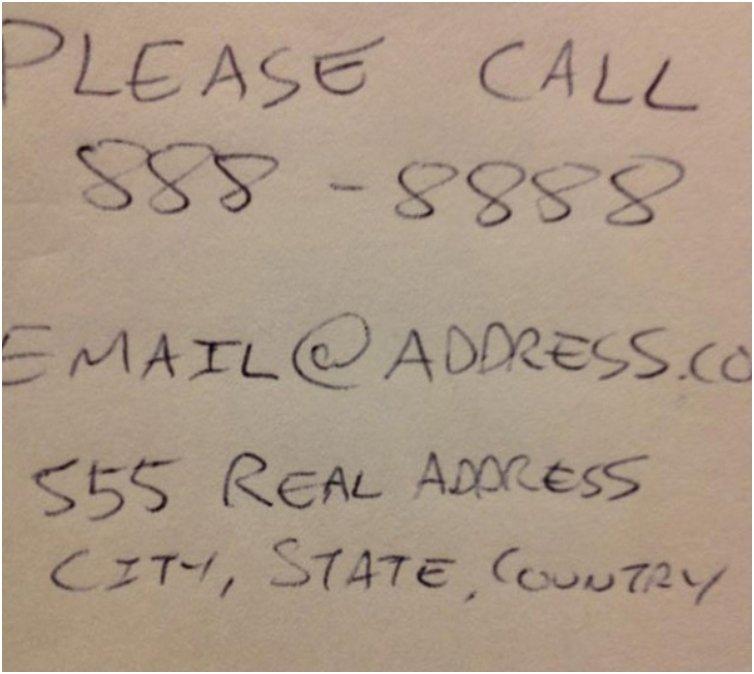 PLEASE CALL
888-8888
EMAIL@ADDRESS.CO
555 REAL ADDRESS
CITY, STATE, COUNTRY